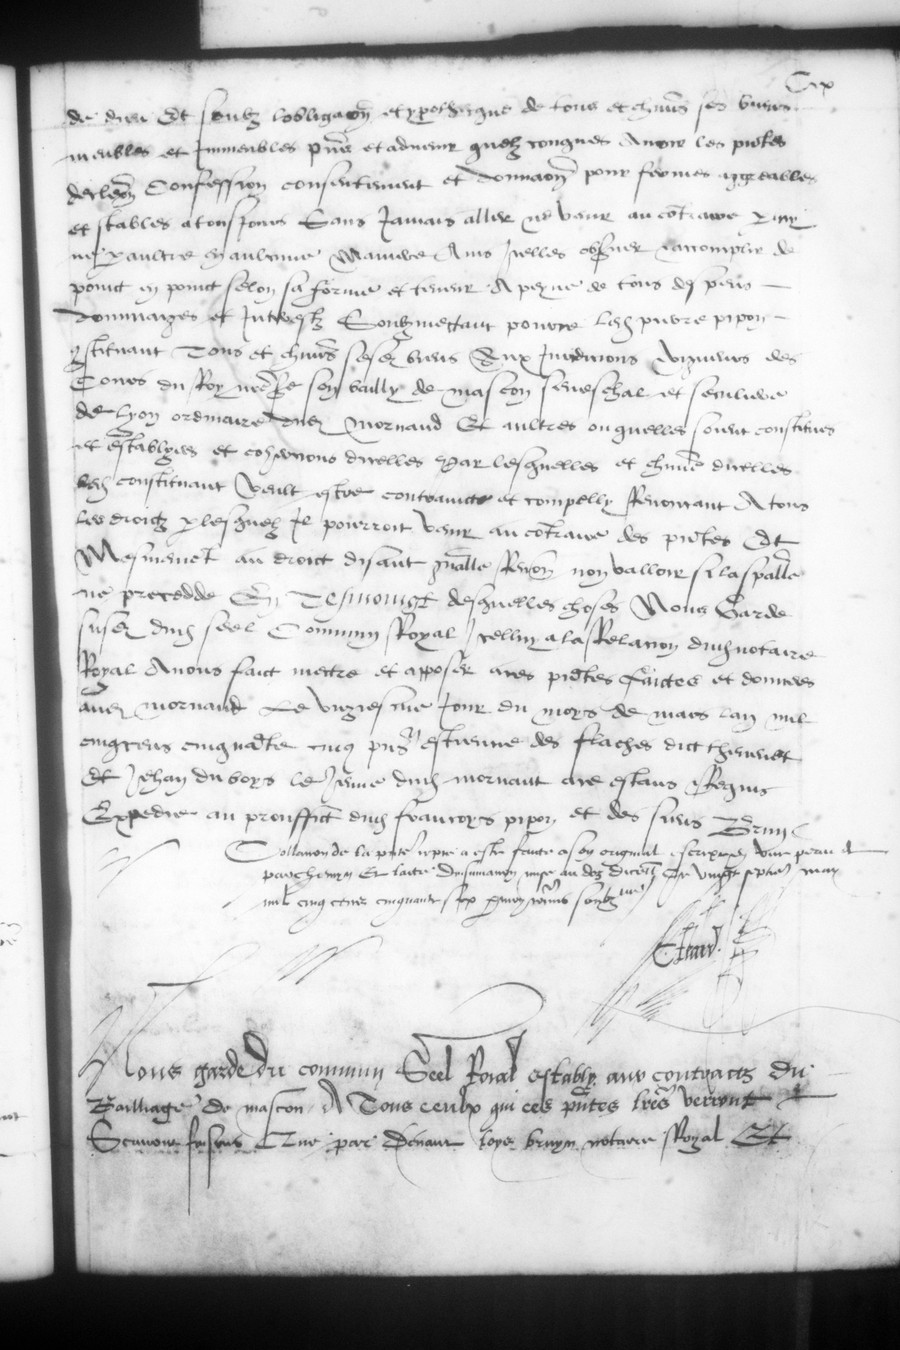 Cix
de dieu Et soubz lobligacion et ypotheque de tous et chuns ses biens
meubles et Immeubles pns et advenir quelz conques Avoir les pntes
decleon Confession consentement et donnaon pour fermes aggreables
et stables a tousjours Sans Jamais aller ne venir au contraire par luy
ne par aultre en aulcune Maniere Ains Icelles observer et accomplir de
poinct en poinct selon sa forme et teneur A peyne de tous despens
dommaiges et Interestz Soubzmettant pource led pierre pipon
constituant Tous et chuns sesd biens Aux Jurdicions vigueurs des
Cours du Roy nre sire son bailly de mascon seneschal et seculiere
de lyon ordinaire dud mornand Et aultres ou quelles soient constitues
et establyes et cohercions dicelles Par lesquelles et chune dicelles
led constituant veult estre contrainct et compelly Renoncant A tous
les droictz par lesquelz Il pourroit venir au contraire des pntes Et
Mesmement au droict disant gnalle Renon non valloir si la spalle
ne precedde En Tesmoingt desquelles choses Nous Garde
susd dud seel Commun Royal Icelluy a la Relacion dud notaire
Royal Avons faict mettre et apposer a ces pntes faictes et donnees
aud mornand Le vingiesme Jour du moys de mars lan mil
cinq cens cinquante cinq pns estienne des flaches dict thevenet
Et Jehan du boys le Jeune dud mornant a ce estans Requis
Expedie au prouffict dud francoys pipon et des siens Brun
Collation de la pnte coppie a este faicte a son original escript en une peau de
parchemyn Et laicte Insinuation mise au doz dicell Le vingt septie may
mil cinq cens cinquante six par moy comis soubz ne
Nous garde du commun Seel Roial estably aux contractz du
Bailliage de mascon A Tous ceulx qui ces pntes lres verront
Scavoir faisons Que par devant loys bruyn notaire Royal Et